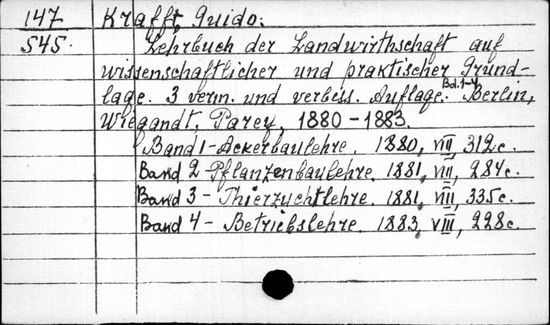 147 Krafft, Guido.
545. Lehrbuch der Landwirthschaft auf
wissenschaftlicher und praktischer Grund-
lage. 3 verm. und verbess. Auflage. Bd. 1-4 Berlin,
Wiegandt, Parey, 1880-1883.
Band 1-Ackerbaulehre. 1880, VIII, 312c.
Band 2-Pflanzenbaulehre. 1881, VIII, 284c.
Band 3-Thierzuchtlehre. 1881, VIII, 335c.
Band 4-Betriebslehre. 1883, VIII, 228c.